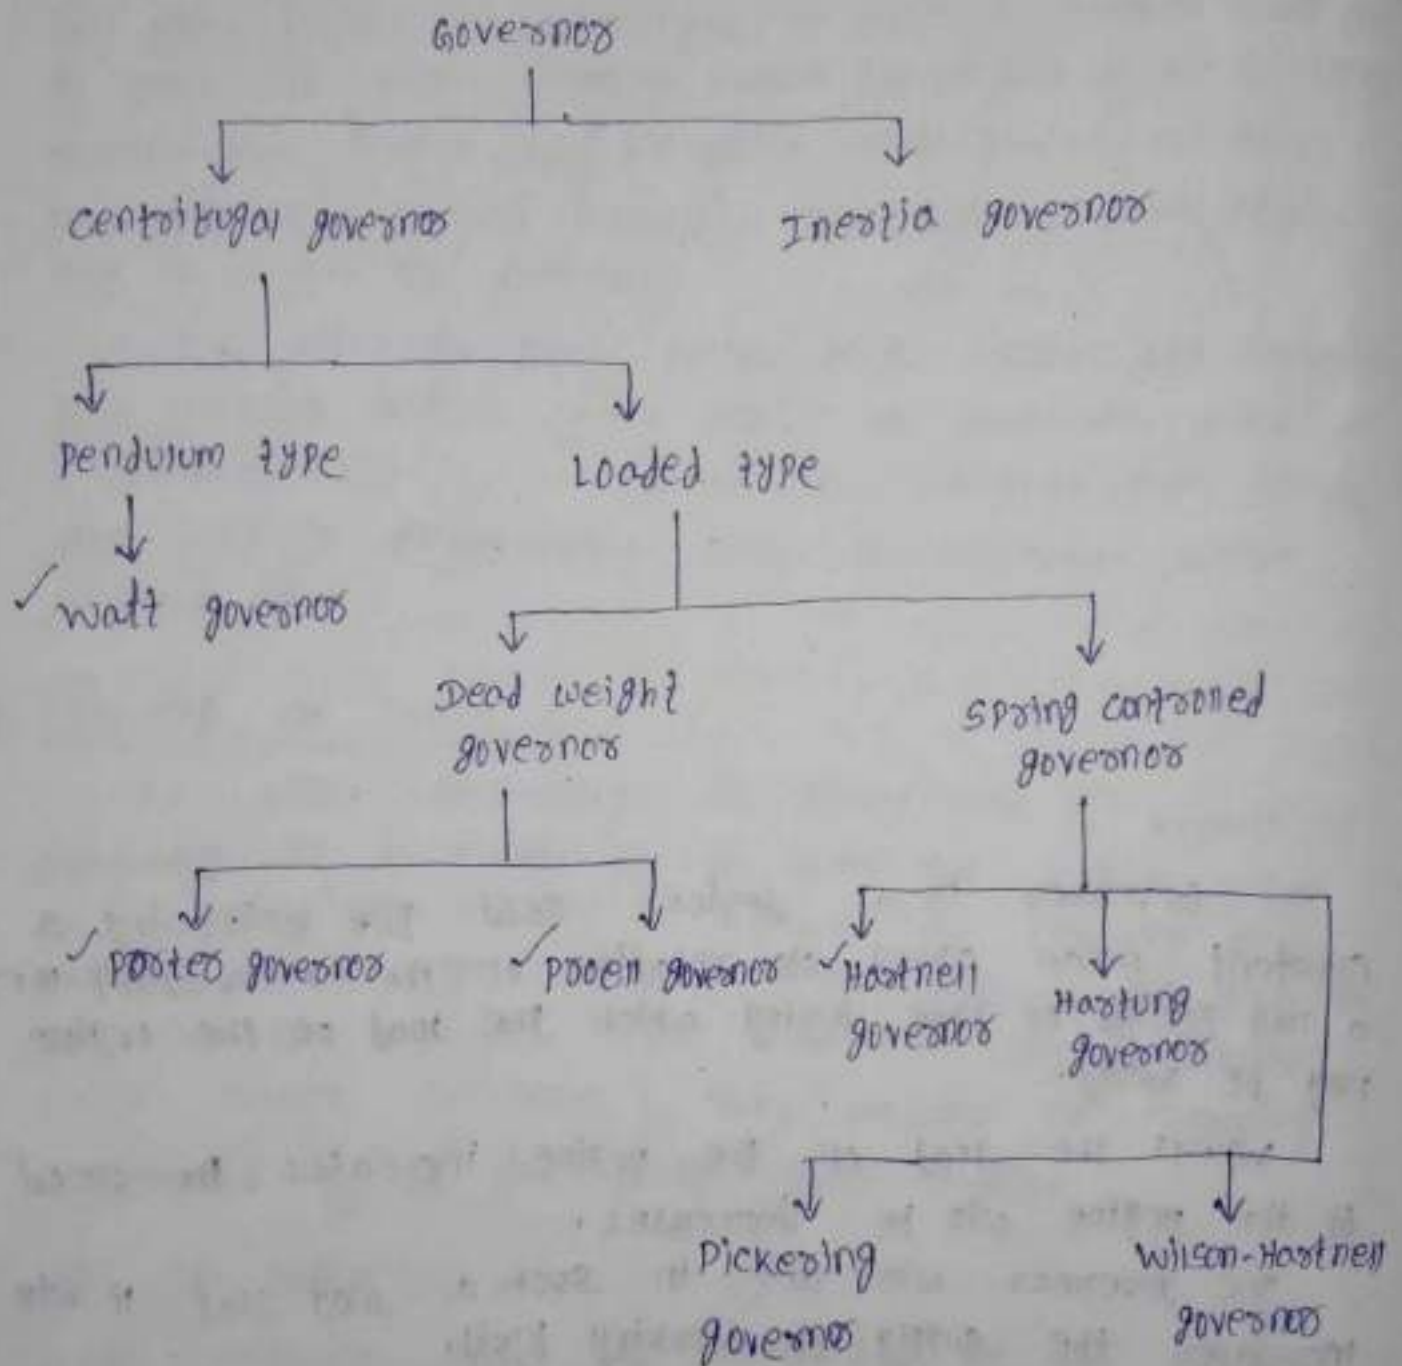 Governor
Centrifugal governor
Inertia governor
Pendulum type
Loaded type
✓ Watt governor
Dead weight
governor
Spring controlled
governor
✓ Porter governor
✓ Proell governor
✓ Hartnell
governor
Hartung
governor
Pickering
governor
Wilson-Hartnell
governor